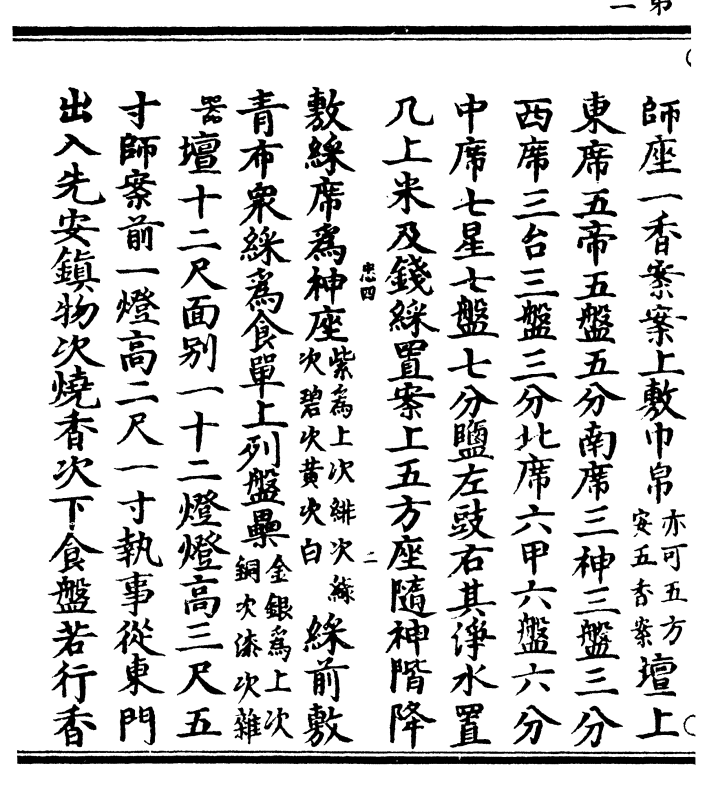 師座一香案案上敷巾帛亦可五方安五香案壇上
東席五帝五盤五分南席三神三盤三分
西席三台三盤三分北席六甲六盤六分
中席七星七盤七分鹽左豉右其淨水置
几上米及錢綵置案上五方座隨神階降
忠四
二
敷綵席為神座紫為上次緋次綠次碧次黄次白綵前敷
青布衆綵為食單上列盤罍金銀為上次銅次漆次雜
器壇十二尺面别一十二燈燈高三尺五
寸師案前一燈高二尺一寸執事從東門
出入先安鎮物次燒香次下食盤若行香